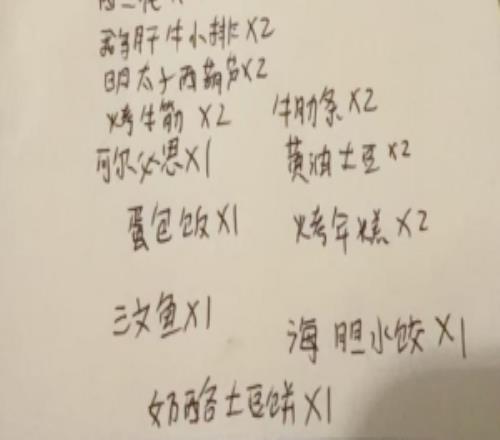 鹅肝牛小排X2
明太子西葫芦X2
烤牛筋 X2 牛肋条X2
可尔必思X1 黄油土豆X2
蛋包饭X1 烤年糕X2
三文鱼X1
海胆水饺X1
奶酪土豆饼X1